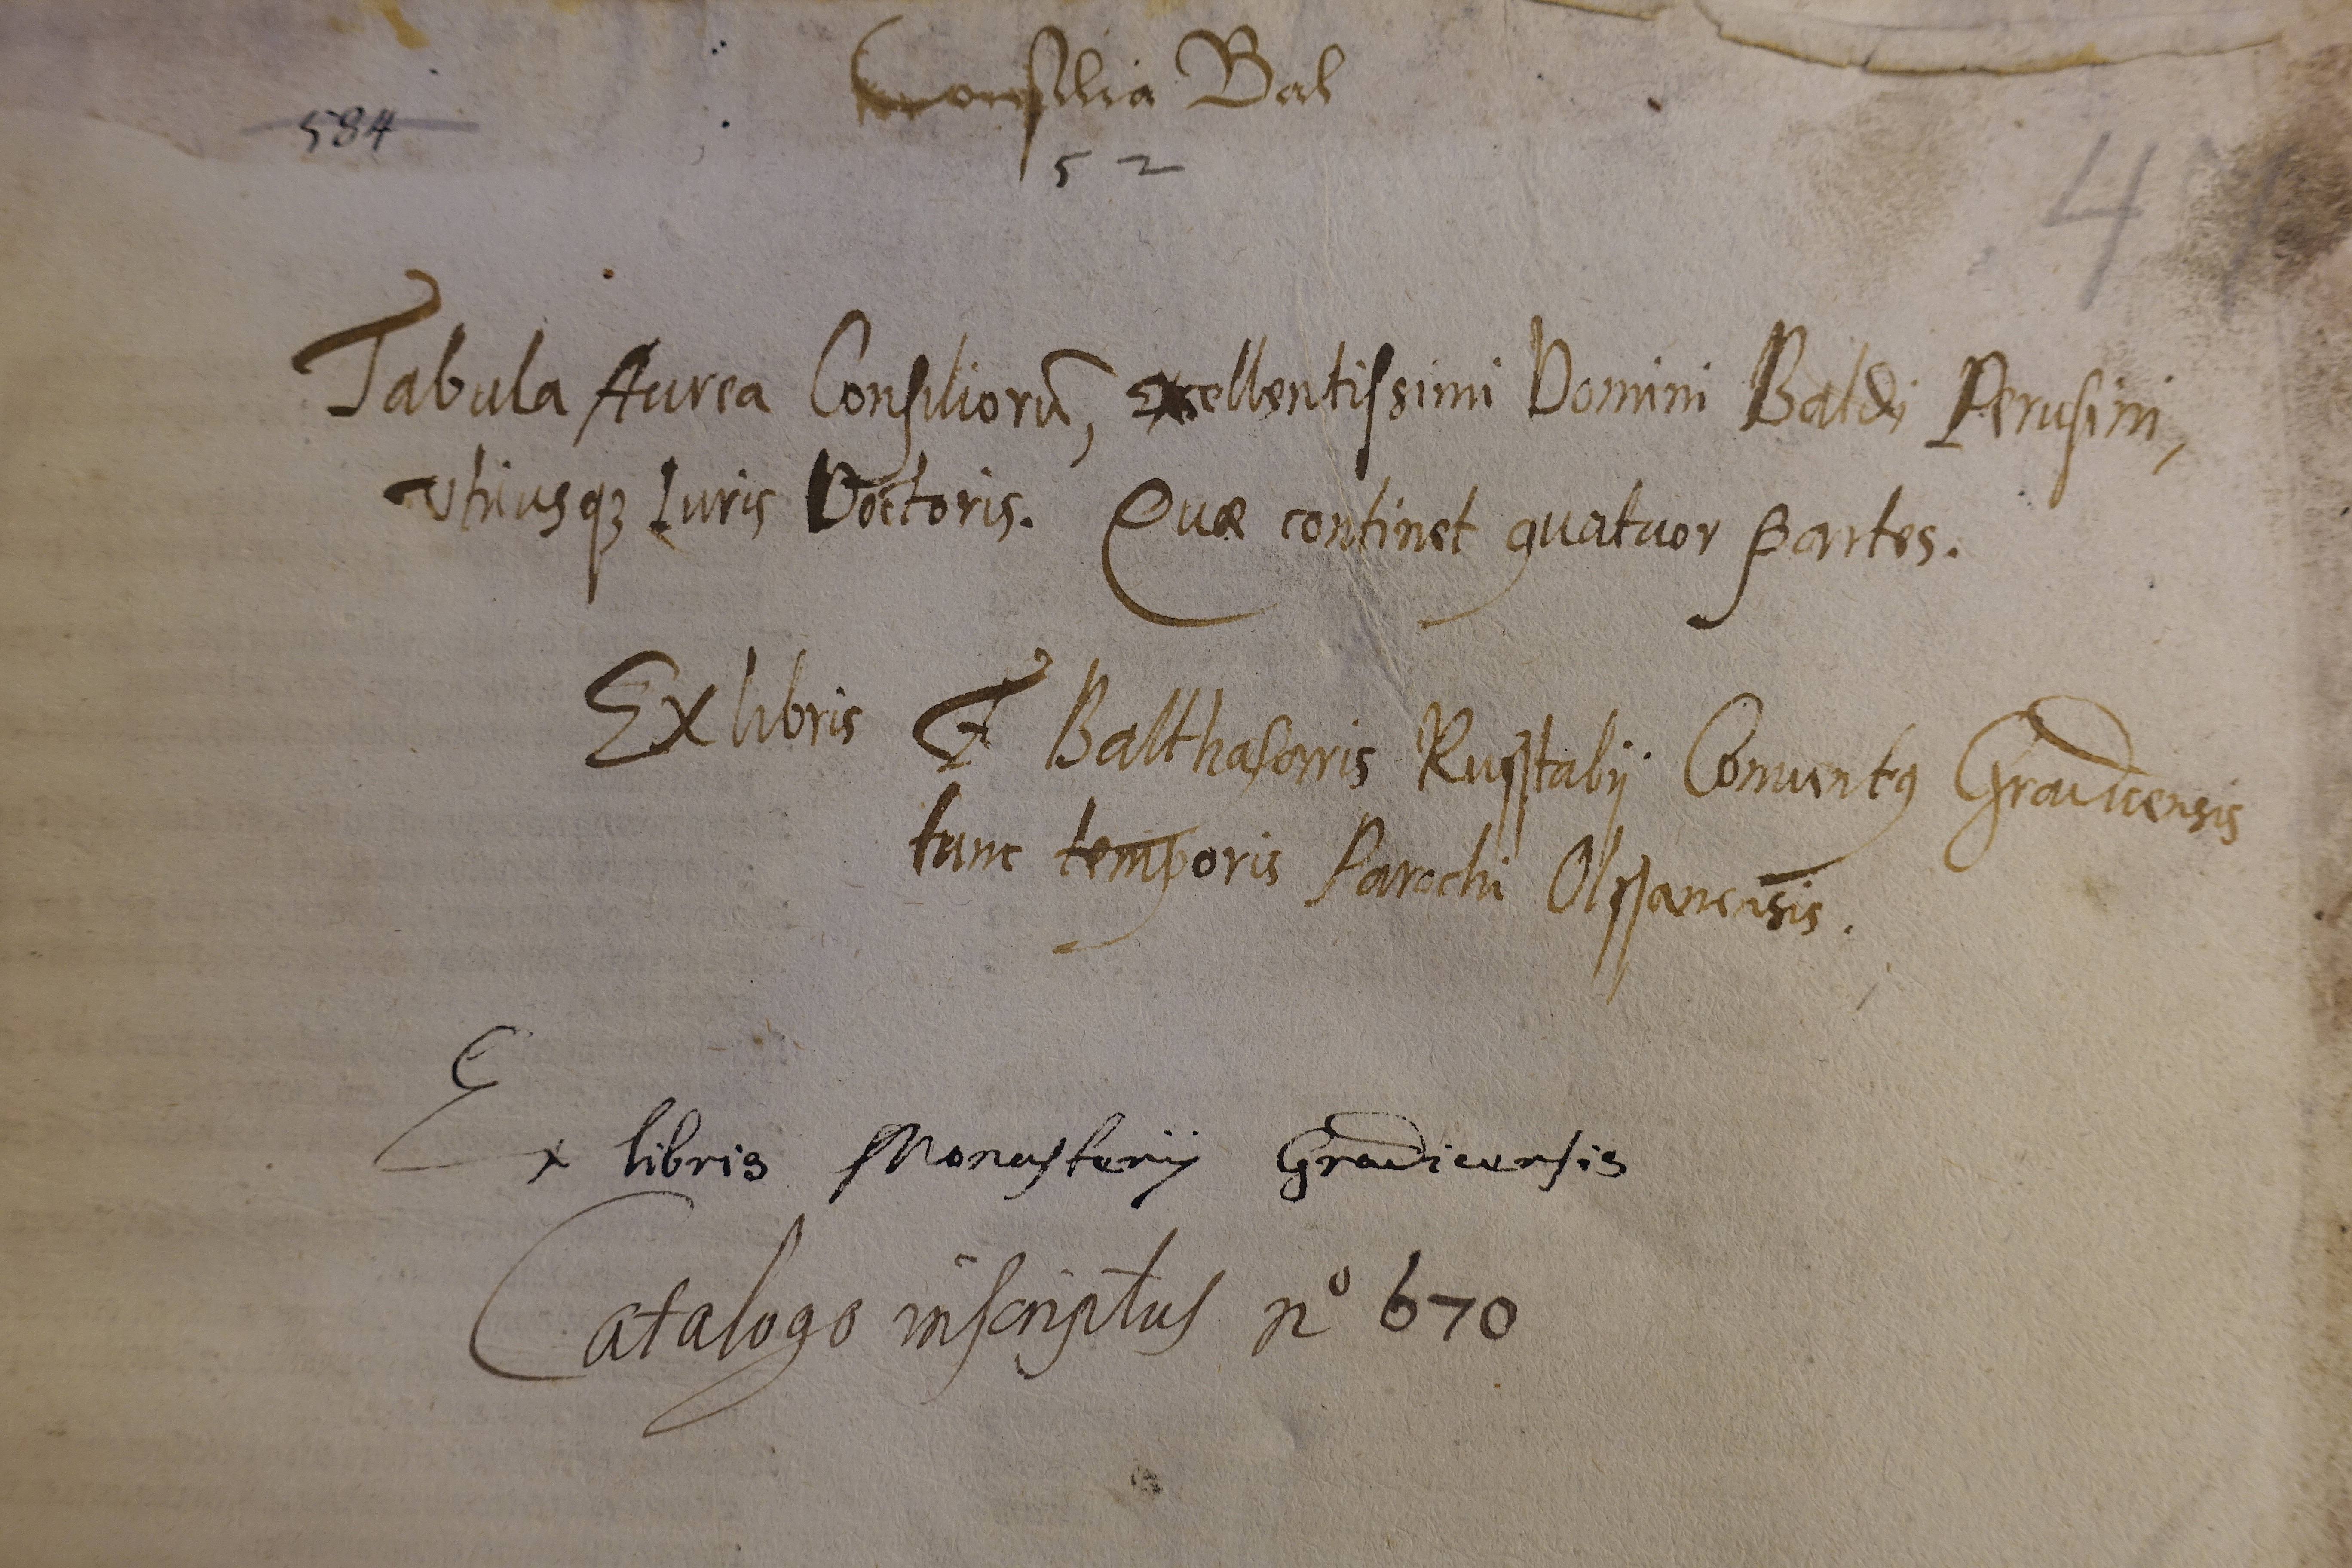 Consilia Bal
584
52
4
Tabula Aurea Consiliorū, excellentissimi Domini Baldi Perusini,
vtriusqꝫ Iuris Doctoris. Quæ continet quatuor partes.
Ex libris F Balthasaris Conuentꝰ Gradicensis
tunc temporis Parochi
Ex libris Monasterij Gradicensis
Catalogo inscriptus nº 670